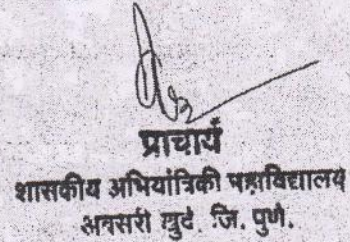 प्राचार्य
शासकीय अभियांत्रिकी महाविद्यालय
अवसरी खुर्द जि. पुणे.